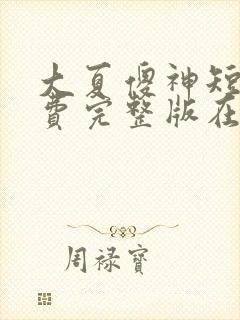 大夏傻神短
费完整版在
周禄宝